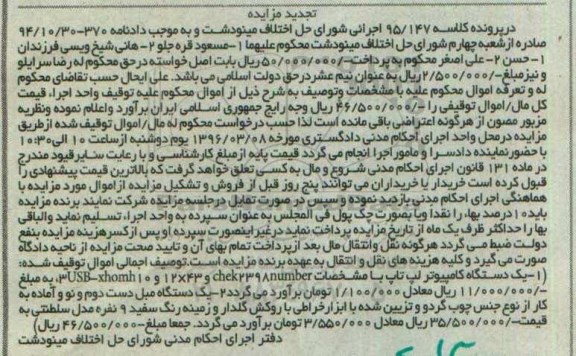 تجدید مزایده
درپرونده کلاسه ۹۵/۱۴۷ اجرائی شورای حل اختلاف مینودشت و به موجب دادنامه ۳۷۰-۹۴/۱۰/۳۰
صادره ازشعبه چهارم شورای حل اختلاف مینودشت محکوم علیهما ۱-مسعود قره جلو ۲-هانی شیخ ویسی فرزندان
۱-حسن ۲-علی اصغر محکوم به پرداخت-/۵۰/۰۰۰/۰۰۰ریال بابت اصل خواسته درحق محکوم له رضا سرایلو
و نیز مبلغ-/۲/۵۰۰/۰۰۰ریال به عنوان نیم عشردرحق دولت اسلامی می باشد. علی ایحال حسب تقاضای محکوم
له و تعرفه اموال محکوم علیه با مشخصات وتوصیف به شرح ذیل از اموال محکوم علیه توقیف واحد اجراء، قیمت
کل مال/اموال توقیفی را -/۴۶/۵۰۰/۰۰۰ ریال وجه رایج جمهوری اسلامی ایران برآورد واعلام نموده ونظریه
مزبور مصون از هرگونه اعتراضی باقی مانده است لذا حسب درخواست محکوم له مال/اموال توقیف شده ازطریق
مزایده درمحل واحد اجرای احکام مدنی دادگستری مورخه ۱۳۹۶/۰۳/۰۸ یوم دوشنبه ازساعت ۱۰ الی۱۰:۳۰
با حضورنماینده دادسرا و مامور اجرا انجام می گردد قیمت پایه ازمبلغ کارشناسی و با رعایت سایرقیود مندرج
در ماده ۱۳۱ قانون اجرای احکام مدنی شروع و مال به کسی تعلق خواهد گرفت که بالاترین قیمت پیشنهادی را
قبول کرده است خریدار یا خریداران می توانند پنج روز قبل از فروش و تشکیل مزایده ازاموال مورد مزایده با
هماهنگی اجرای احکام مدنی بازدید نموده و سپس در صورت تمایل درجلسه مزایده شرکت نمایند برنده مزایده
باید۱۰درصد بها، را نقدا ویا بصورت چک پول فی المجلس به عنوان سپرده به واحد اجراء تسلیم نماید والباقی
بها را حداکثر ظرف یک ماه از تاریخ مزایده پرداخت نماید درغیراینصورت سپرده او پس ازکسرهزینه مزایده بنفع
دولت ضبط می گردد هرگونه نقل وانتقال مال بعد ازپرداخت تمام بهای آن و تایید صحت مزایده از ناحیه دادگاه
صورت می گیرد و کلیه هزینه های نقل و انتقال به عهده برنده مزایده است.توصیف اجمالی اموال توقیف شده:
(۱-یک دستگاه کامپیوتر لپ تاپ با مشخصات chek۲۳۹۸number و ۱۲x۴۳ و ۱۰ ۳USB-xhomh، به مبلغ
-/۱۱/۰۰۰/۰۰۰ ریال معادل ۱/۱۰۰/۰۰۰ تومان برآورد می گردد۲-یک دستگاه مبل دست دوم و نو و آماده به
کار از نوع جنس چوب گردو و تزیین شده با ابزارخراطی با روکش گلدار و زمینه رنگ سفید ۹ نفره مدل سلطنتی به
قیمت-/۳۵/۵۰۰/۰۰۰ ریال معادل ۳/۵۵۰/۰۰۰ تومان برآورد می گردد. جمعا مبلغ-/۴۶/۵۰۰/۰۰۰ ریال)
دفتر اجرای احکام مدنی شورای حل اختلاف مینودشت